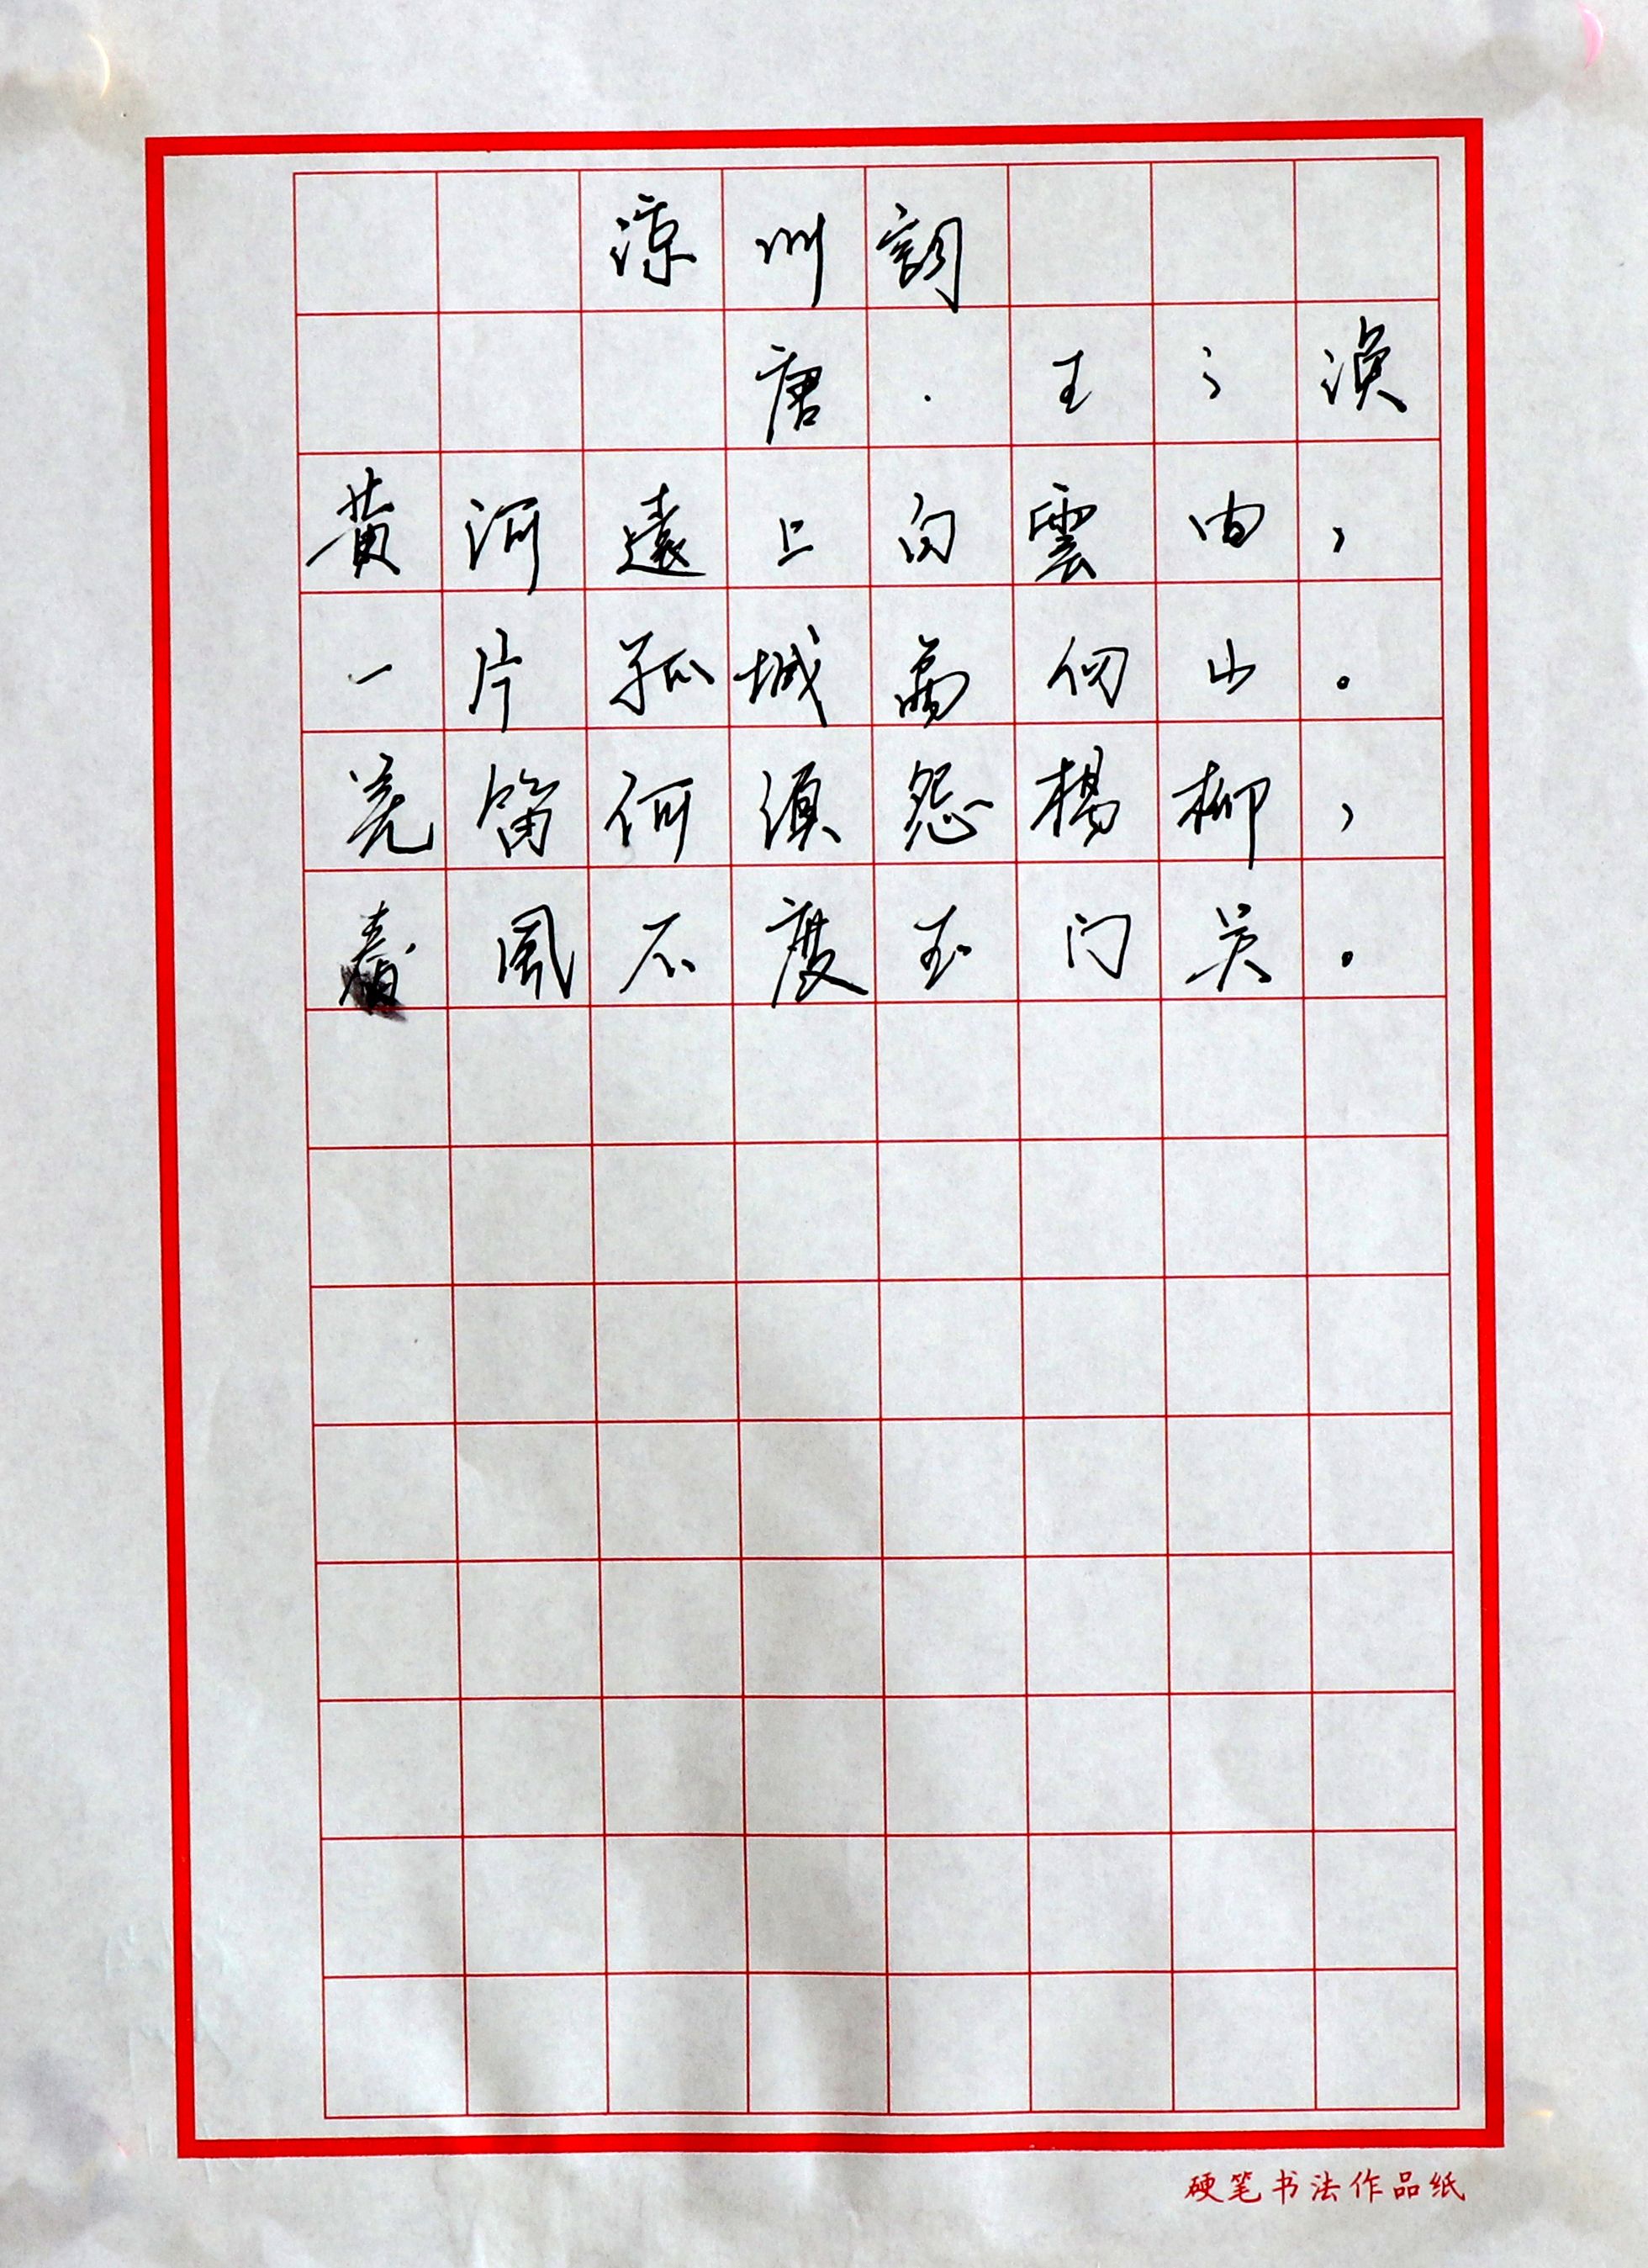 涼州詞
唐·王之渙
黄河遠上白雲间，
一片孤城萬仞山。
羌笛何須怨楊柳，
春風不度玉门关。
硬笔书法作品纸